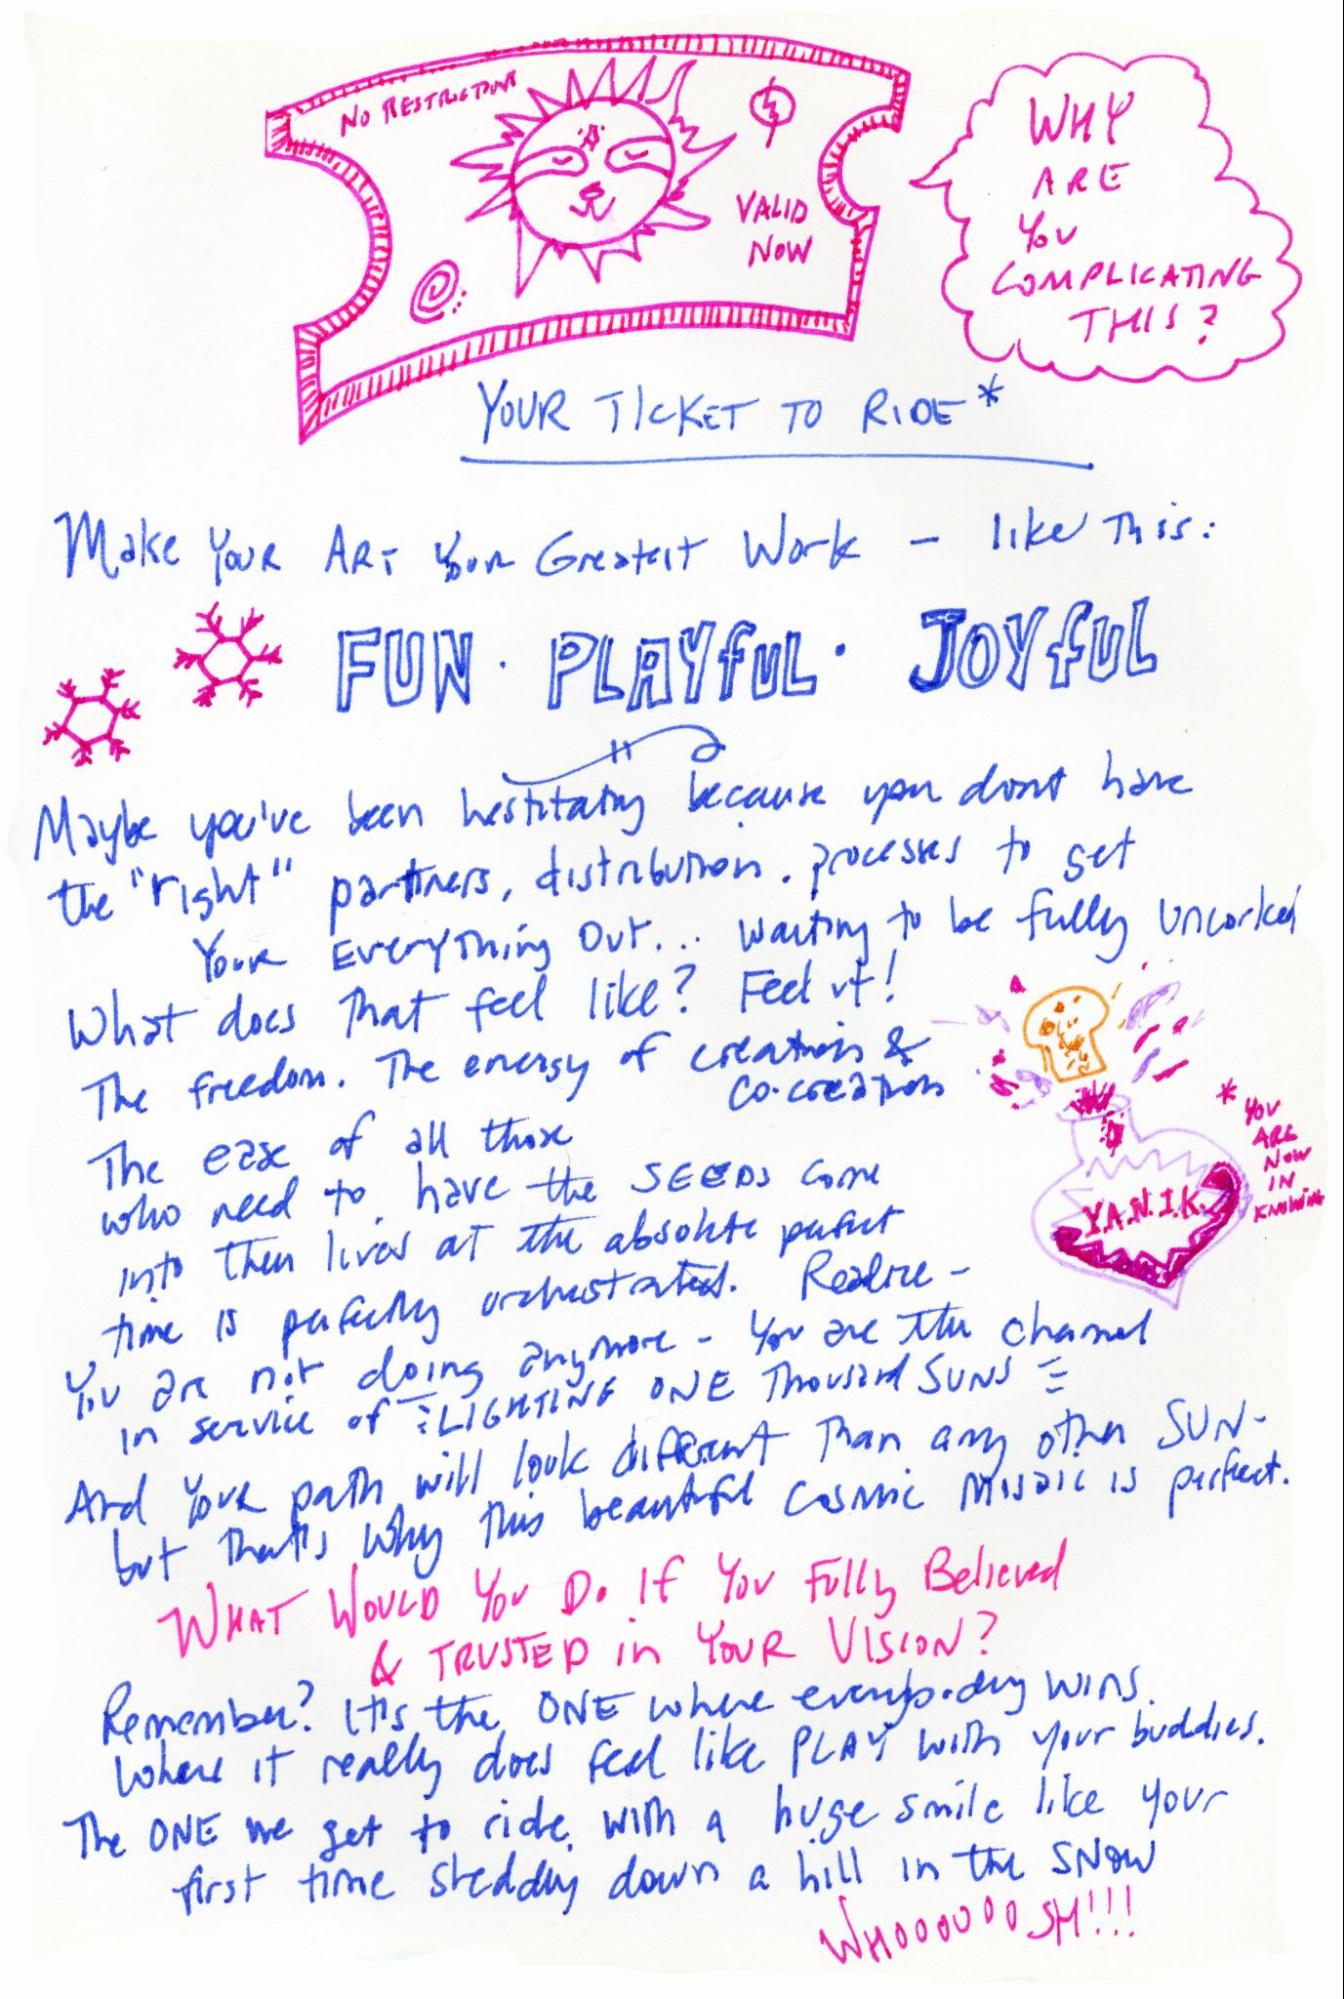 NO RESTRICTIONS
VALID
NOW
WHY
ARE
YOU
COMPLICATING
THIS?
YOUR TICKET TO RIDE*
Make Your Art Your Greatest Work – like This:
FUN · PLAYfUL · JOYfUL
Maybe you've been hestitating because you dont have
the "right" partners, distribution, processes to get
Your Everything Out... waiting to be fully Uncorked
What does That feel like? Feel it!
The freedom. The energy of creation &
co-creation
The ease of all those
who need to have the SEEDS come
into their lives at the absolute perfect
time is perfectly orchestrated. Realize –
You are not doing anymore – You are the channel
in service of LIGHTING ONE Thousand SUNS
And Your path will look different Than any other SUN-
but that's Why This beautiful Cosmic Mosaic is perfect.
* YOU
ARE
NOW
IN
KNOWING
Y.A.N.I.K.
WHAT WOULD You Do If You Fully Believed
& TRUSTED in YOUR VISION?
Remember? It's the ONE where everybody wins.
Where it really does feel like PLAY with your buddies.
The ONE we get to ride with a huge smile like your
first time sledding down a hill in the SNOW
WHOOOOOOSH!!!